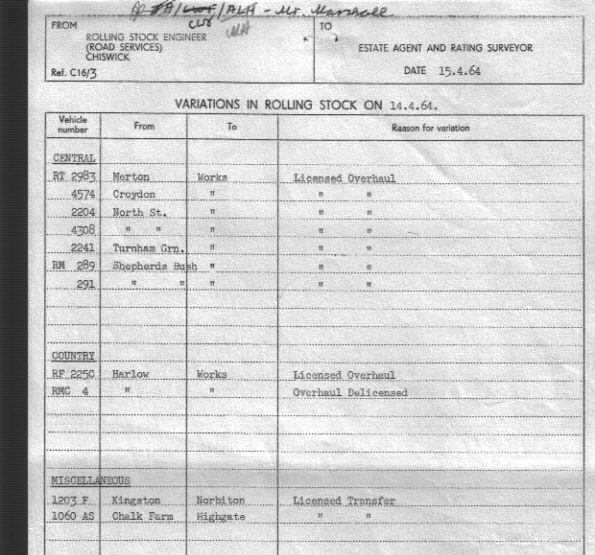 /ALH - Mr. Marshall
FROM
ROLLING STOCK ENGINEER
(ROAD SERVICES)
CHISWICK
Ref. C16/3
TO
ESTATE AGENT AND RATING SURVEYOR
DATE 15.4.64
VARIATIONS IN ROLLING STOCK ON 14.4.64.
Vehicle number From To Reason for variation
CENTRAL
RT 2983 Merton Works Licensed Overhaul
4574 Croydon " " "
2204 North St. " " "
4308 " " " " "
2241 Turnham Grn. " " "
RM 289 Shepherds Bush " " "
291 " " " " "
COUNTRY
RF 225C Harlow Works Licensed Overhaul
RMC 4 " " Overhaul Delicensed
MISCELLANEOUS
1203 F Kingston Norbiton Licensed Transfer
1060 AS Chalk Farm Highgate " "